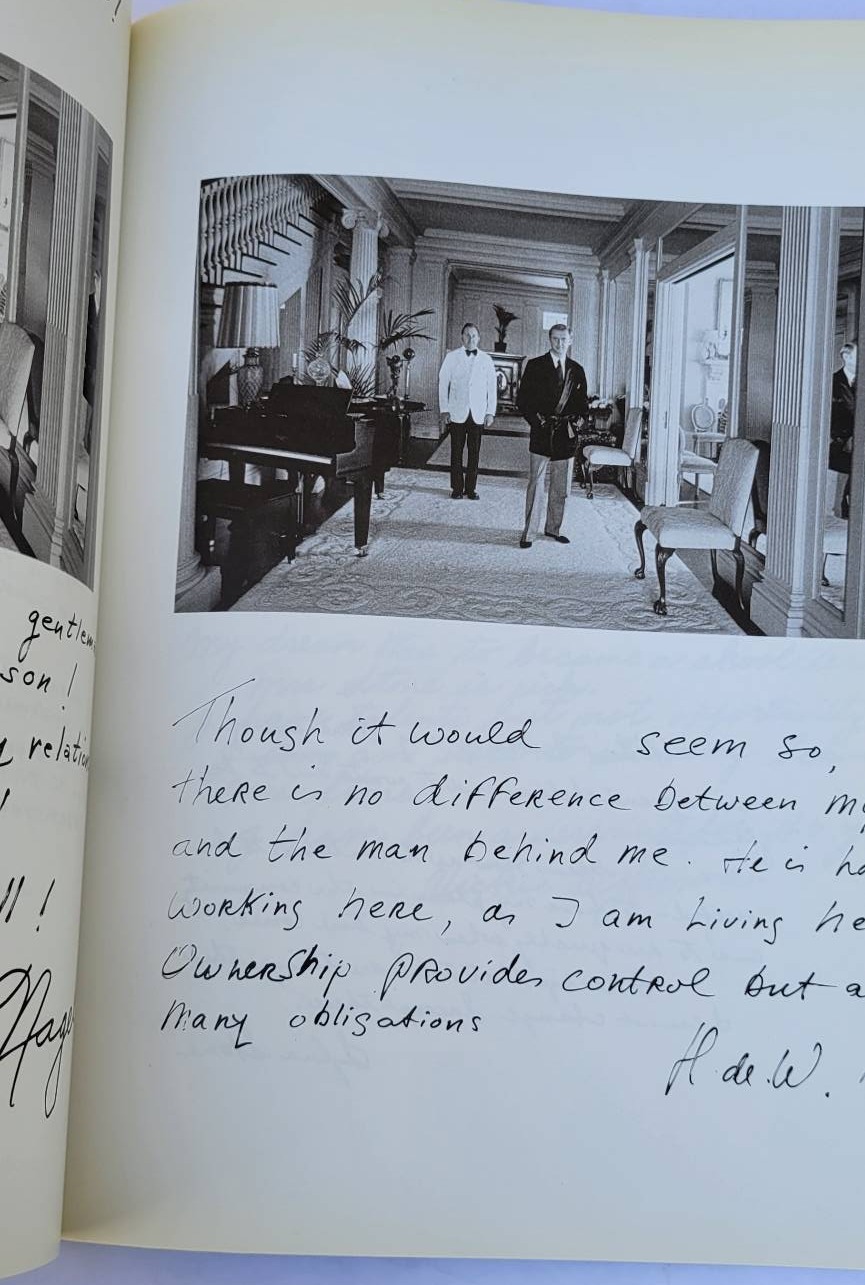 !
gentlem
son!
y relati
!
ll!
Though it would seem so,
there is no difference between my
and the man behind me. He is ha
working here, as I am Living he
Ownership provides control but a
Many obligations
H. de. W.